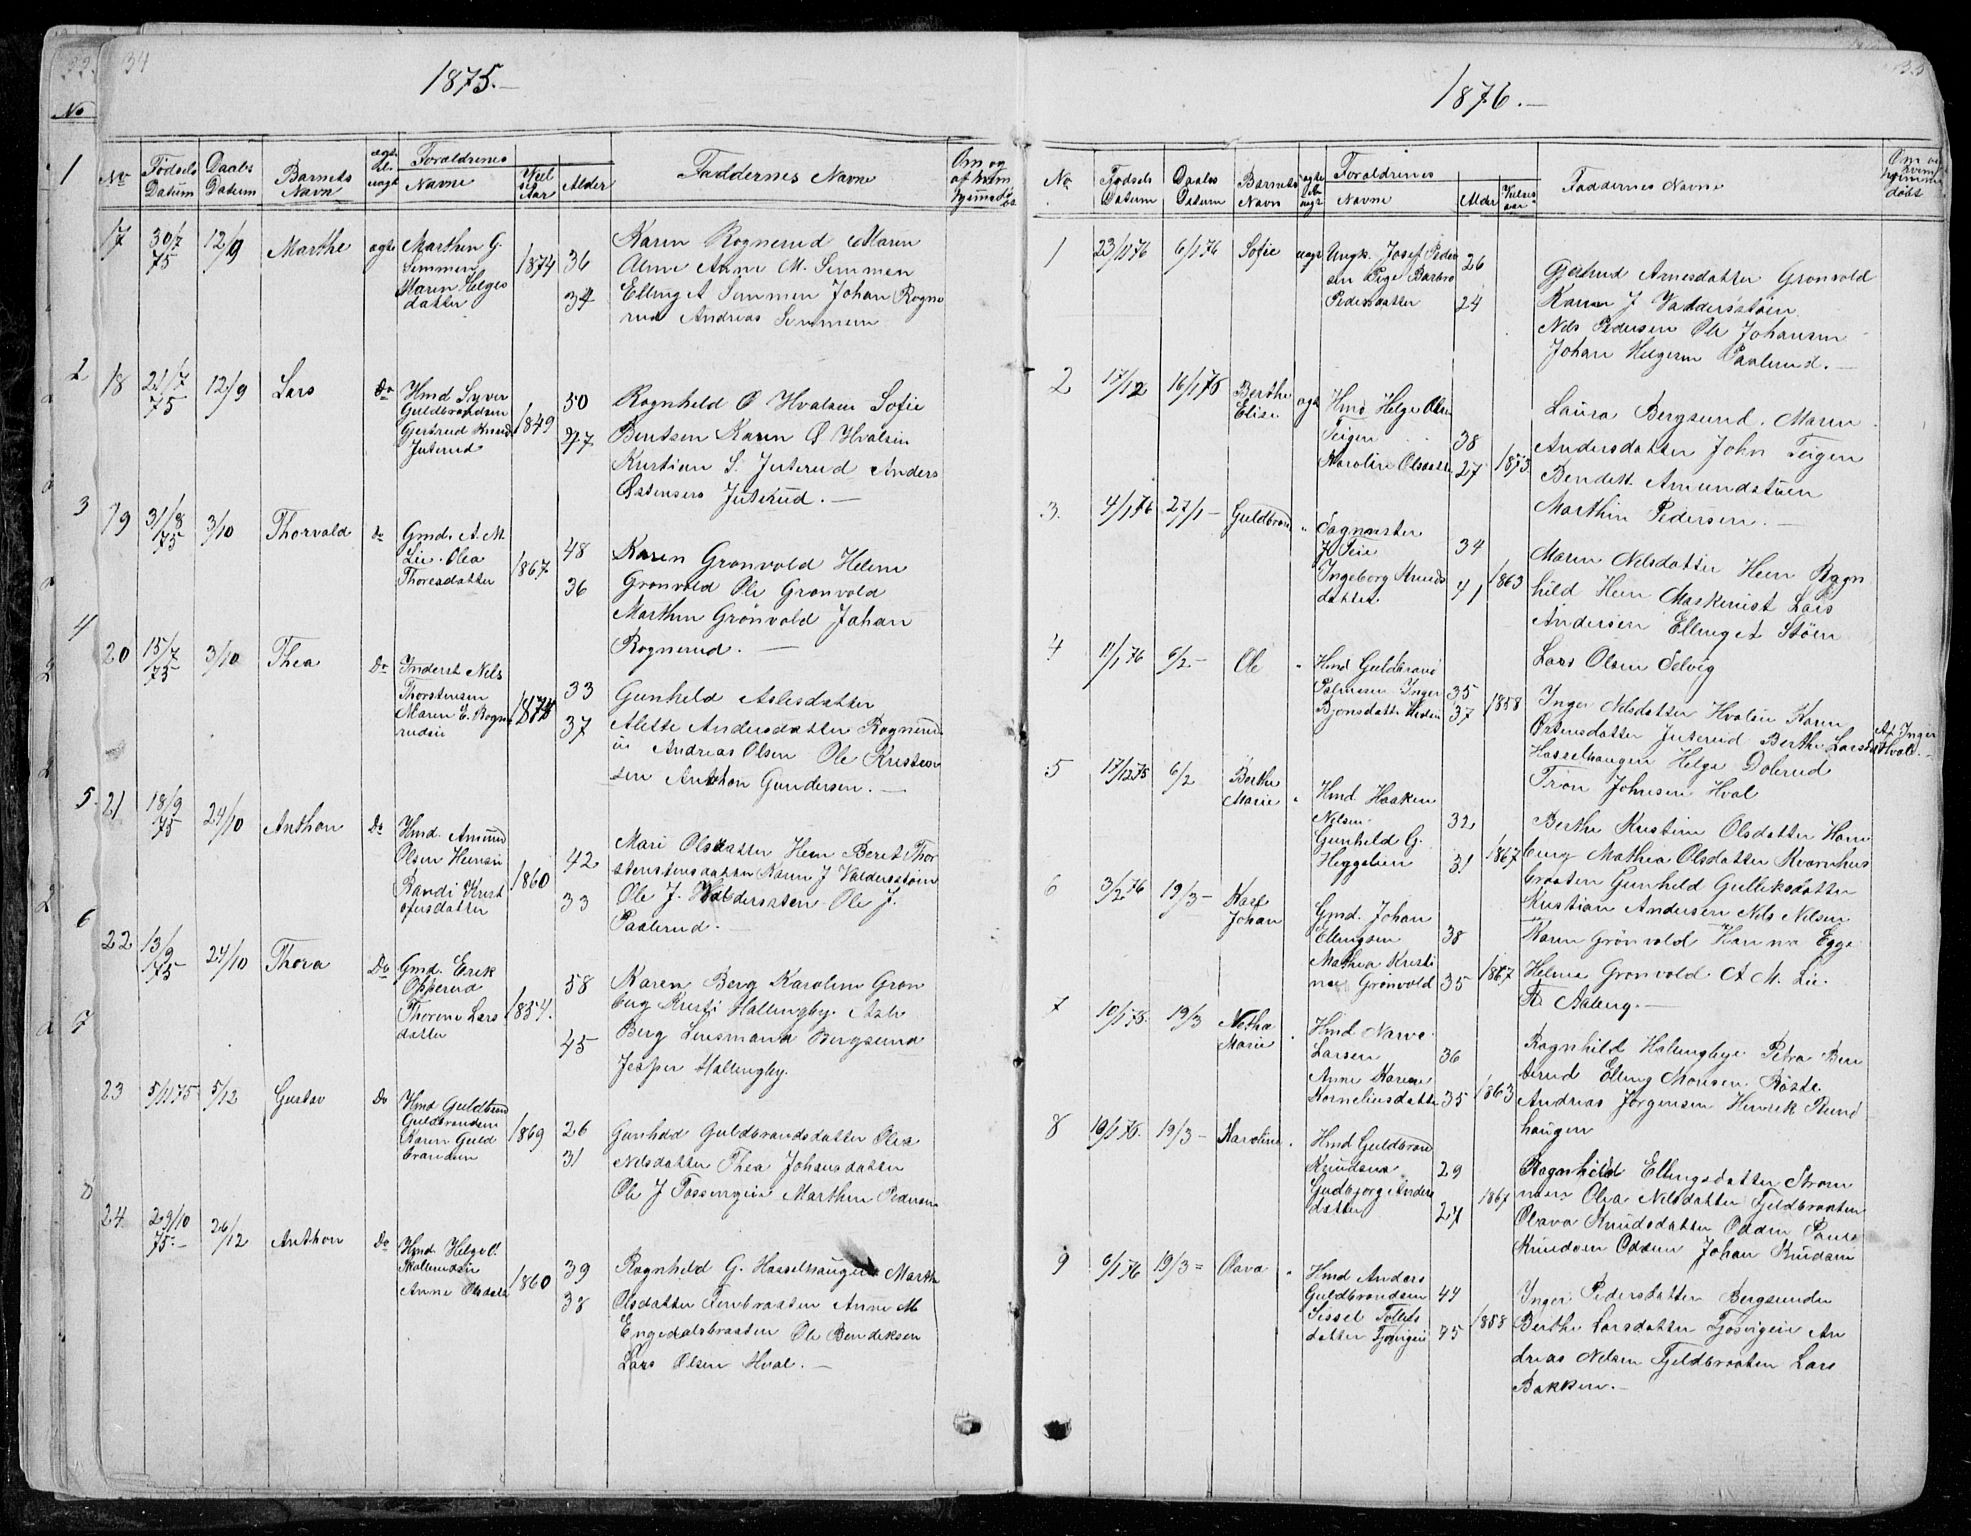 34
1875.—
No
Fødsels Datum
Daabs Datum
Barnets Navn
Forældrenes Navne
Alder
Faddernes Navne
17 30/7 75 12/9 Marthe agte Marthin G.
Simmen
Maren Helges
datter
1874 36
34
Karen Rognerud Maren
Anne M. Simmen
Elling Simmen Johan Rogne
rud Andreas Simmen
18 21/7 75 12/9 Lars Do Hmd Syver
Guldbrandsen
Gertrud Knuds
Juterud
1849 50
47
Ragnhild O Hvalsen Sofie
Bentsen Karen O Hvalsin
Kristian S. Juterud Anders
Østensen Juterud.—
19 31/8 75 3/10 Thorvald Do Gmd. A. M
Lie Olea
Thoresdatter
1867 48
36
Karen Grønvold Helene
Grønvold Ole Grønvold
Marthin Grønvold Johan
Rognerud.—
20 15/7 75 3/10 Thea Do Inderst Nils
Thorstensen
Maren E. Rogne
rudeie
1874 33
37
Gunhild Aslesdatter
Alette Andersdatter Rognerud
ei Andreas Olsen Ole Kristian
sen Anthon Gundersen.—
21 18/9 75 24/10 Anthon Do Hmd. Amund
Olsen
Randi Krist
ofersdatter
1860 42
33
Mari Olsdatter Hem Beret Thor
stensdatter Karen J Valdersstøen
Ole J. Valdersstøen Ole J.
Paalerud.—
22 13/9 75 24/10 Thora Do Gmd. Erik
Opperud
Thorene Lars
datter
1854. 58
45
Karen Berg Karoline Grøn
berg Kristi Hallingby. Asle
Berg Lensmand Bergsund
Jesper Hallingby.
23 5/11 75 5/12 Gustav Do Hmd Guldbrand
Guldbrandsen
Karen Guld
brandsen
1869 26
31
Gunhild Guldbrandsdatter Olea
Nilsdatter Thea Johansdatter
Ole J Marthin Pedersen
24 29/10 75.— 26/12 Anthon Do Hmd Helge O.
Skollerudsei
Anne Olsdatter
1860 39
38
Ragnhild G. Hasselhaugen Marthe
Olsdatter Finbraaten Anne M
Engedalsbraaten Ole Bendiksen
Lars Olsen Hval.—
35
1876.—
No
Fødsels Datum
Daabs Datum
Barnets Navn
Forældrenes Navne
Alder
Vielses aar
Faddernes Navne
1 23/11 76 6/1 76 Sofie uagt Ungk. Josef Peder
sen Pige Barbro
Pedersdatter
26
24
Gjertrud Arnesdatter Grønvold
Karen J Valdersstøen
Nils Pedersen Ole Johansen
Johan Helgesen Paalerud.—
2 17/12 16/1 75 Berthe
Elise
agte Hmd Helge Olsen
Teigen
Karoline Olsdatter
38
27 1873
Laura Bergsund. Maren
Andersdatter John Teigen
Bendik Amundstøen
Marthin Pedersen.—
3. 4/1 76 27/1— Guldbrand " Sagmester
J Teie
Ingeborg Knuds
datter
34
41 1863
Maren Nilsdatter Hem Ragn
hild Hem Maskinist Lars
Andersen Elling Støen
Lars Olsen Solvig
4 11/1 76 6/2— Ole " Hmd Guldbrand
Palmesen Inger
Bjønsdatter
35
37 1858
Inger Nilsdatter Hvalsei Karen
Østensdatter Juterud Berthe Larsdat
Hasselhaugen Helge Dolerud
Tron Johnsen Hval
Af Inger
Hval.—
5 17/12 75 6/2 Berthe
Marie " Hmd Haaken
Nilsen
Gunhild G.
Heggelien
32
31 1867
Berthe Kristine Olsdatter Ham
berg Mathia Olsdatter Kvarnhus
braaten Gunhild Gulliksdatter
Kristian Andersen Nils Nilsen
6 3/2 76 19/3— Karl
Johan
Gmd. Johan
Ellingsen
Mathea Kristi
ne Grønvold
38
35 1867
Karen Grønvold Hanna Egge
Helene Grønvold A M. Lie.
Aaberg.—
7 10/1 75. 19/3 Nethe
Marie . Hmd Narve
Larsen
Anne Karine
Kornelius datter
36
35 1863
Ragnhild Hallingbye Petra Ben
terud Elling Monsen Røste
Andreas Jørgensen Henrik Rund
haugen
8 19/1 75. 19/3— Karoline . Hmd Guldbrand
Knudsen
Gudbjørg Anders
datter
29
27 1861
Ragnhild Ellingsdatter Strøm
men Olea Nilsdatter Fjeldbraaten
Olava Knudsdatter Odden Paul
Knudsen Odden Johan Knudsen
9 6/1 76 19/3 = Olava " Hmd Anders
Guldbrandsen
Sissel Tollefs
datter Tjosvigen
44
45 1858
Inger Pedersdatter Bergsundei
Berthe Larsdatter Tjosvigen An
dreas Nilsen Fjeldbraaten Lars
Bakken.—